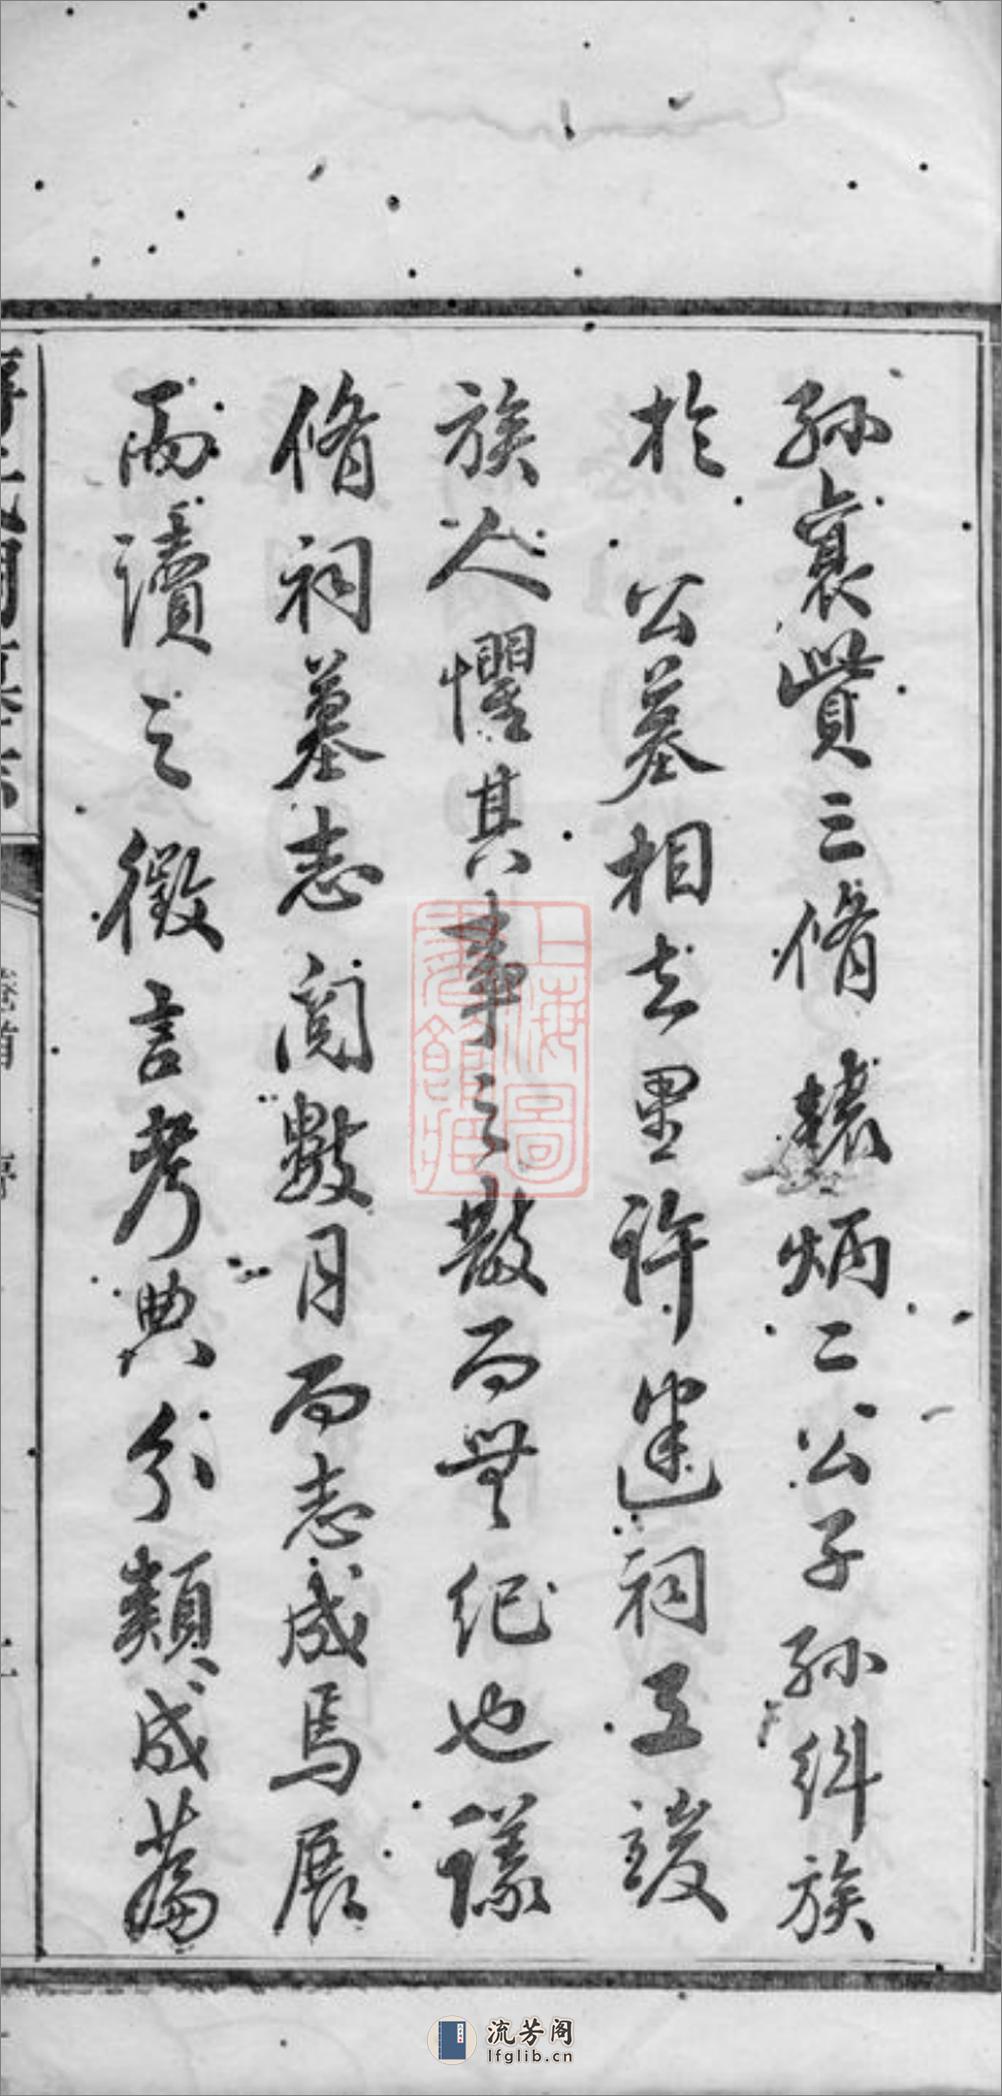 孫裒貲三脩轅炳二公子孫糾族
於公墓相去里許建祠工竣
族人懼其事之散而無紀也議
脩祠墓志閱數月而志成焉展
而讀之徵言考典分類成篇
上海圖
書館藏
流芳阁
lfglib.cn